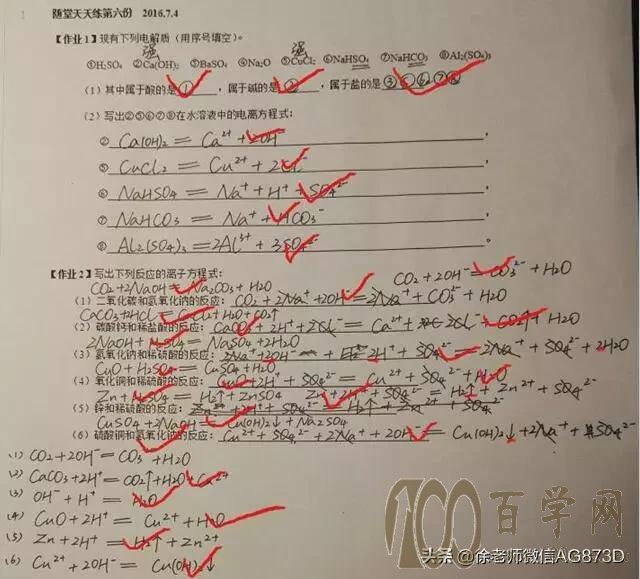 随堂天天练第六份 2016.7.4
【作业1】现有下列电解质(用序号填空)。
强 强
①H₂SO₄ ②Ca(OH)₂ ③BaSO₄ ④Na₂O ⑤CuCl₂ ⑥NaHSO₄ ⑦NaHCO₃ ⑧Al₂(SO₄)₃
(1)其中属于酸的是 ① ,属于碱的是 ② ,属于盐的是 ③⑤⑥⑦⑧
(2)写出②⑤⑥⑦⑧在水溶液中的电离方程式:
② Ca(OH)₂ = Ca²⁺ + 2OH⁻ ,
⑤ CuCl₂ = Cu²⁺ + 2Cl⁻ ,
⑥ NaHSO₄ = Na⁺ + H⁺ + SO₄²⁻ ,
⑦ NaHCO₃ = Na⁺ + HCO₃⁻ ,
⑧ Al₂(SO₄)₃ = 2Al³⁺ + 3SO₄²⁻ 。
【作业2】写出下列反应的离子方程式:
CO₂+2NaOH = Na₂CO₃ + H₂O CO₂ + 2OH⁻ = CO₃²⁻ + H₂O
(1)二氧化碳和氢氧化钠的反应: CO₂ + 2Na⁺ + 2OH⁻ = 2Na⁺ + CO₃²⁻ + H₂O
CaCO₃+2HCl = CaCl₂+H₂O+CO₂↑
(2)碳酸钙和稀盐酸的反应: CaCO₃ + 2H⁺ + 2Cl⁻ = Ca²⁺ + 2Cl⁻ + CO₂↑ + H₂O
2NaOH + H₂SO₄ = Na₂SO₄ +2H₂O
(3)氢氧化钠和稀硫酸的反应: 2Na⁺+2OH⁻ + 2H⁺ + SO₄²⁻ = 2Na⁺ + SO₄²⁻ + 2H₂O
CuO + H₂SO₄ = CuSO₄ + H₂O
(4)氧化铜和稀硫酸的反应: CuO + 2H⁺ + SO₄²⁻ = Cu²⁺ + SO₄²⁻ + H₂O
Zn + H₂SO₄ = H₂↑ + ZnSO₄ Zn + 2H⁺ + SO₄²⁻ = H₂↑ + Zn²⁺ + SO₄²⁻
(5)锌和稀硫酸的反应: Zn²⁺ + 2H⁺ + SO₄²⁻ = H₂↑ + Zn²⁺ + SO₄²⁻
CuSO₄ + 2NaOH = Cu(OH)₂↓ + Na₂SO₄
(6)硫酸铜和氢氧化钠的反应: Cu²⁺ + SO₄²⁻ + 2Na⁺ + 2OH⁻ = Cu(OH)₂↓ + 2Na⁺ + SO₄²⁻
(1) CO₂ + 2OH⁻ = CO₃²⁻ + H₂O
(2) CaCO₃ + 2H⁺ = CO₂↑ + H₂O + Ca²⁺
(3) OH⁻ + H⁺ = H₂O
(4) CuO + 2H⁺ = Cu²⁺ + H₂O
(5) Zn + 2H⁺ = H₂↑ + Zn²⁺
(6) Cu²⁺ + 2OH⁻ = Cu(OH)₂↓
100百学网
头条@徐老师微信AG873D